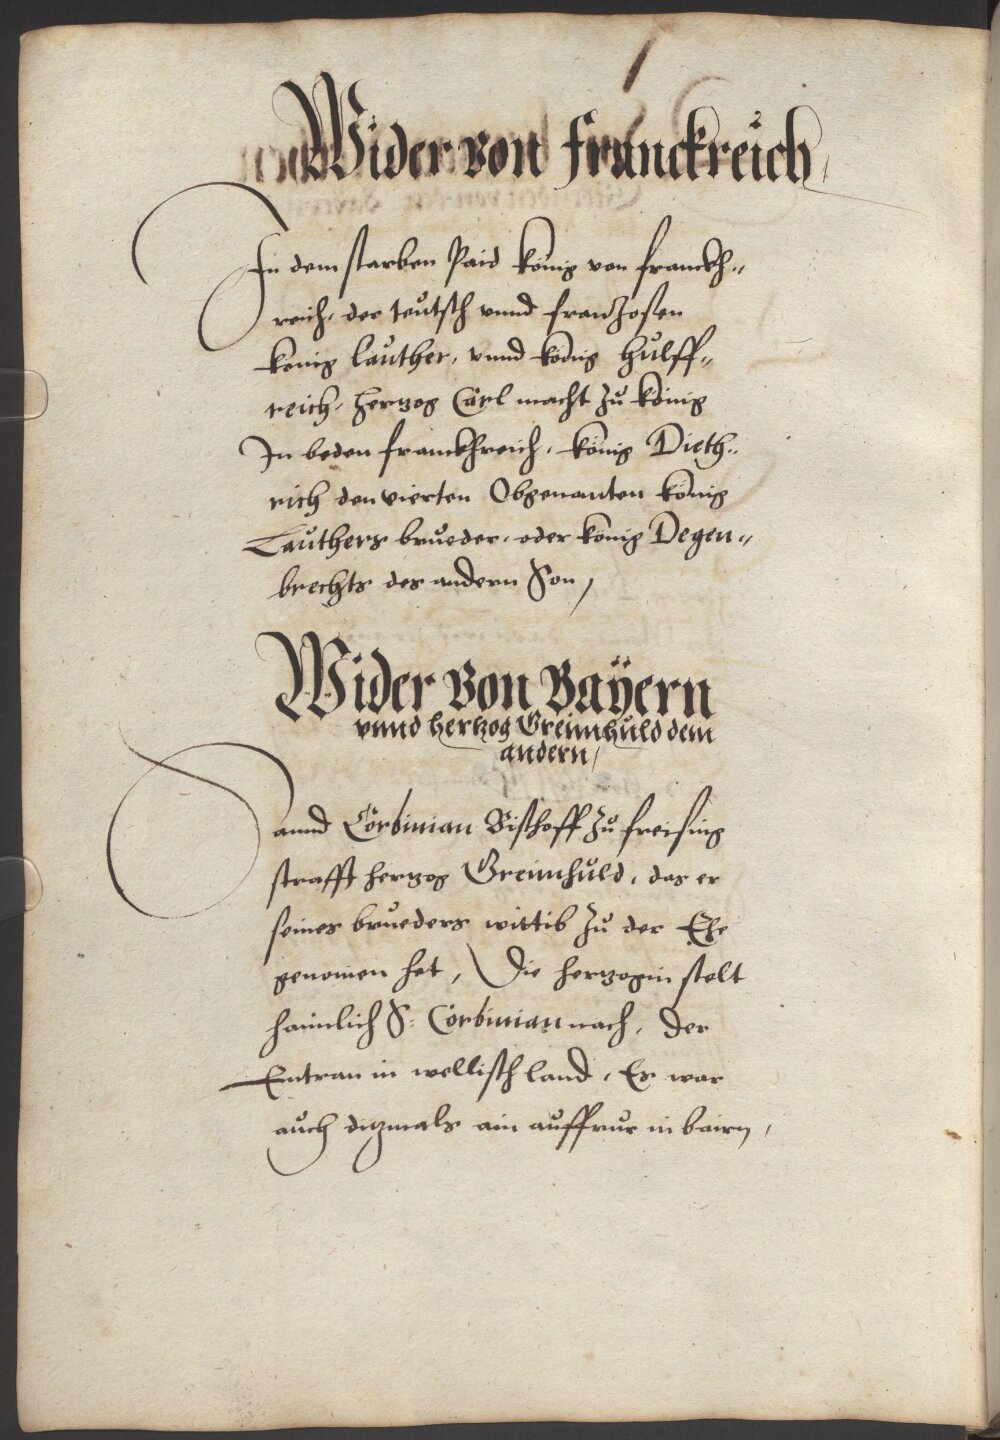 Wider von Franckreich
In dem starben Paid König von Franckh„
reich, der teutsch vnnd Franzosen
König Lauther, vnnd König Hulff„
reich, Hertzog Carl macht zu König
In beden Franckhreich, König Dieth„
rich den vierten Obgenanten König
Lauthers brueder, oder König Degen„
brechts des andern Son,
Wider Von Bayern
vnnd hertzog Greimhuld dem
andern,
Sannd Corbinian Bischoff zu Freising
strafft hertzog Greimhuld, das er
seines brueders wittib zu der Ehe
genomen het, Die hertzogin stelt
haimlich S: Corbinian nach, Der
Entran in wellisch land, Es war
auch ditzmals ain auffrur in bairn,